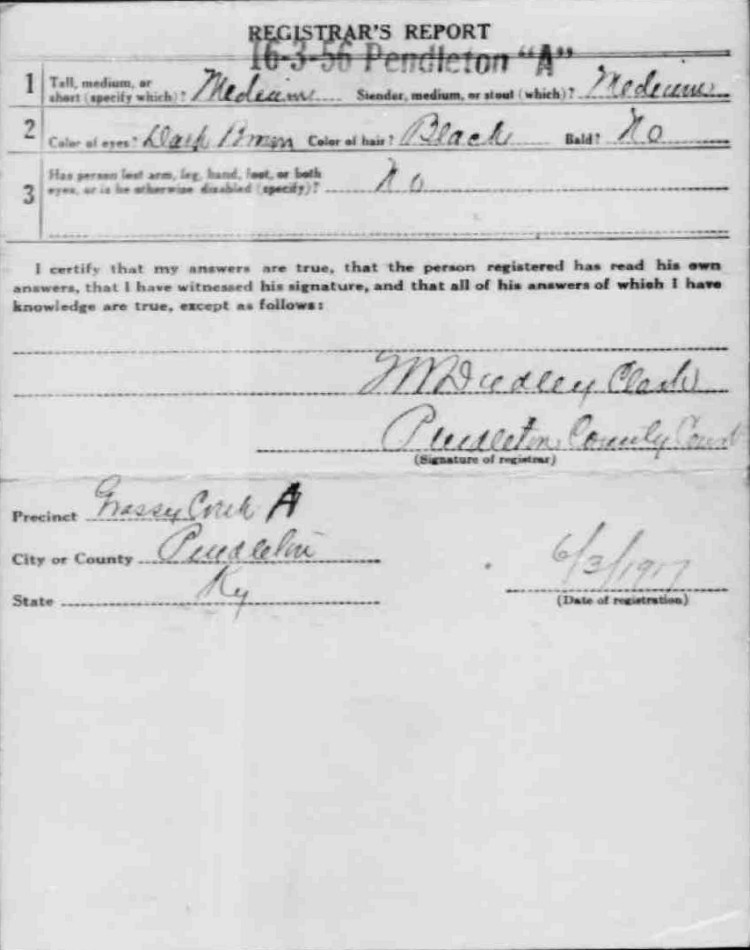 REGISTRAR'S REPORT
16-3-56 Pendleton "A"
1 Tall, medium, or short (specify which)? Medium Slender, medium, or stout (which)? Medium
2 Color of eyes? Dark Brown Color of hair? Black Bald? No
3 Has person lost arm, leg, hand, foot, or both
eyes, or is he otherwise disabled (specify)? No
I certify that my answers are true, that the person registered has read his own
answers, that I have witnessed his signature, and that all of his answers of which I have
knowledge are true, except as follows:
Dudley Clark
Pendleton County Court
(Signature of registrar)
Precinct Grassy Creek A
City or County Pendleton
State Ky
6/3/1917
(Date of registration)